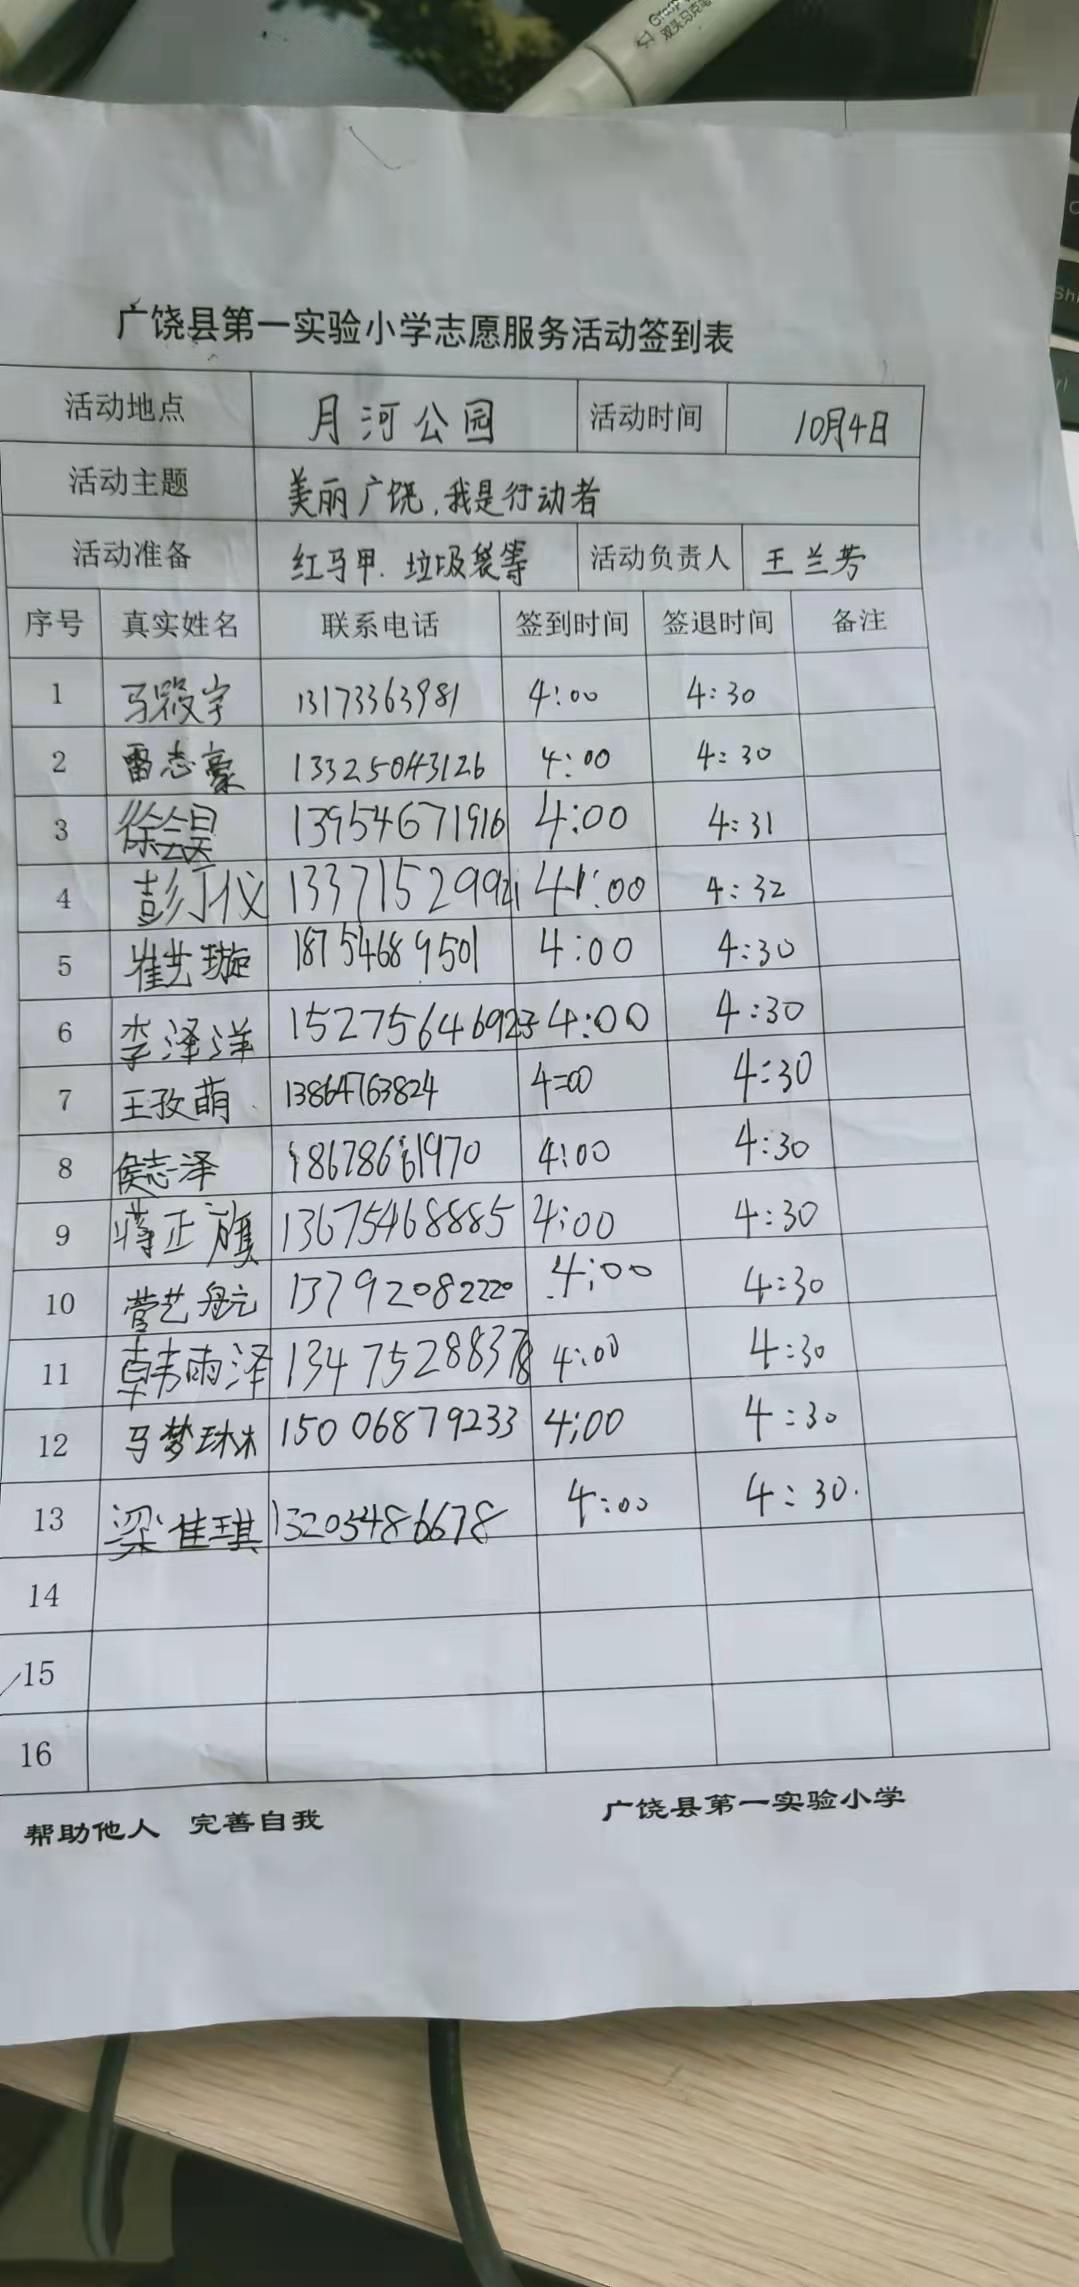 广饶县第一实验小学志愿服务活动签到表
活动地点 月河公园 活动时间 10月4日
活动主题 美丽广饶,我是行动者
活动准备 红马甲、垃圾袋等 活动负责人 王兰芳
序号 真实姓名 联系电话 签到时间 签退时间 备注
1 马毅宇 13173363981 4:00 4:30
2 雷志豪 13325043126 4:00 4:30
3 徐会昊 13954671916 4:00 4:31
4 4:00 4:32
5 崔艺璇 18754689501 4:00 4:30
6 李泽洋 15275646923 4:00 4:30
7 王孜萌 13864763824 4:00 4:30
8 侯志泽 18678661970 4:00 4:30
9 蒋正旗 13675468885 4:00 4:30
10 营艺航 13792082220 4:00 4:30
11 韩雨泽 13475288378 4:00 4:30
12 马梦琳 15006879233 4:00 4:30
13 梁佳琪 13205486678 4:00 4:30.
14
15
16
帮助他人 完善自我 广饶县第一实验小学